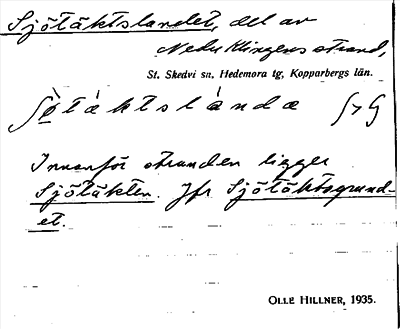 Sjötäktslandet, del av
Nedre Klingens strand,
St. Skedvi sn, Hedemora tg, Kopparbergs län.
Innanför stranden ligger
Sjötäkten. Jfr Sjötäktsgrund-
et.
OLLE HILLNER, 1935.